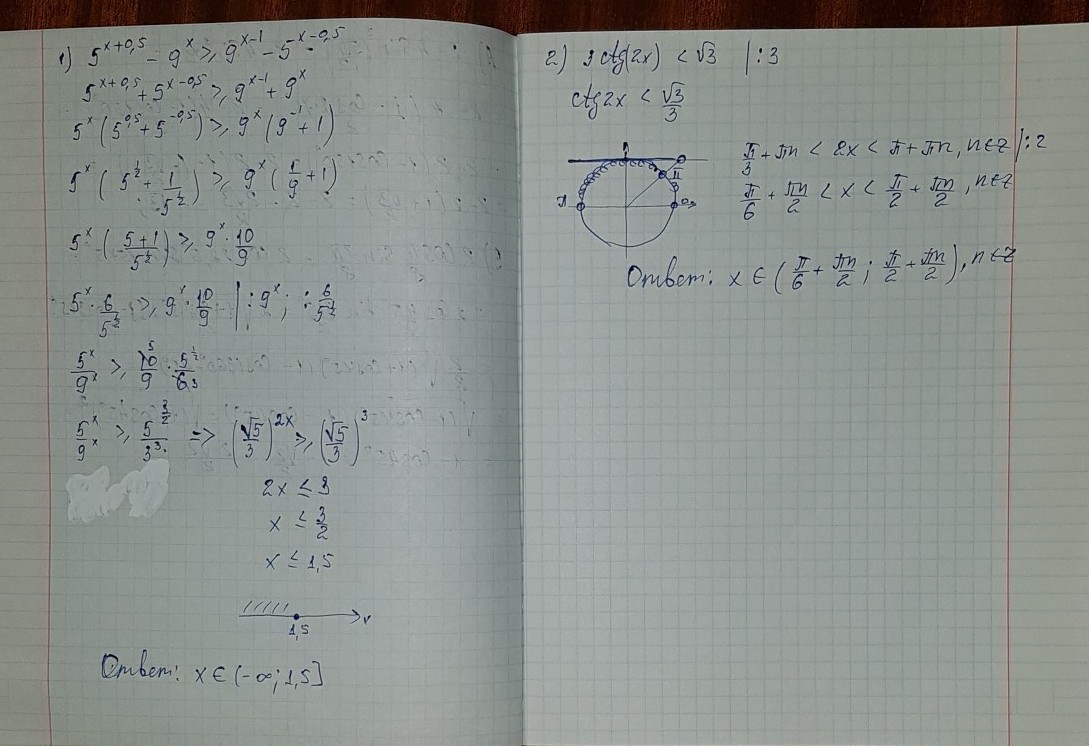 1) 5^{x+0,5} - 9^x ≥ 9^{x-1} - 5^{x-0,5}
5^{x+0,5} + 5^{x-0,5} ≥ 9^{x-1} + 9^x
5^x (5^{0,5} + 5^{-0,5}) ≥ 9^x (9^{-1} + 1)
5^x (5^{1/2} + 1/5^{1/2}) ≥ 9^x (1/9 + 1)
5^x · ((5+1)/5^{1/2}) ≥ 9^x · 10/9
5^x · 6/5^{1/2} ≥ 9^x · 10/9 | : 9^x ; : 6/5^{1/2}
5^x/9^x ≥ 10/9 · 5^{1/2}/6 5 3
5^x/9^x ≥ 5^{3/2}/3^3 => (√5/3)^{2x} ≥ (√5/3)^3
2x ≤ 3
x ≤ 3/2
x ≤ 1,5
1,5
Ответ: x ∈ (-∞; 1,5]
2) 3 ctg(2x) < √3 | : 3
ctg 2x < √3/3
π/3 + πn < 2x < π + πn, n ∈ Z | : 2
π
0
π/6 + πn/2 < x < π/2 + πn/2, n ∈ Z
Ответ: x ∈ (π/6 + πn/2 ; π/2 + πn/2), n ∈ Z